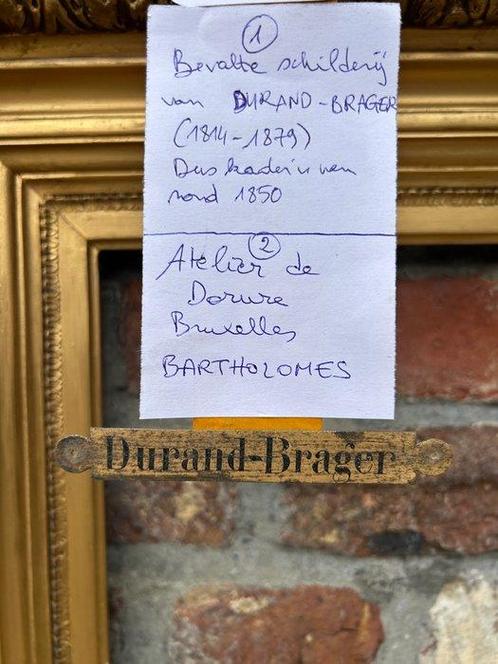 1
Bevatte schilderij
van DURAND-BRAGER
(1814-1879)
Dus kader is van
rond 1850
2
Atelier de
Dorure
Bruxelles
BARTHOLOMES
Durand-Brager